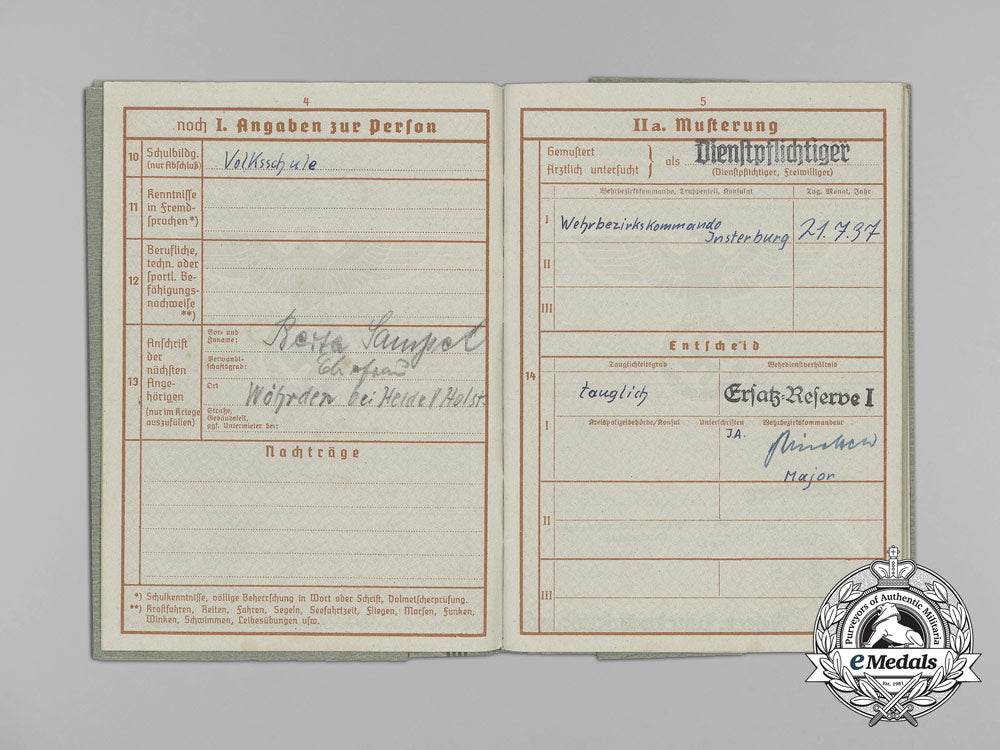 4
noch I. Angaben zur Person
10 Schulbildg. (nur Abschluß)
Volksschule
11 Kenntnisse in Fremd-
sprachen*)
12 Berufliche,
techn. oder
sportl. Be-
fähigungs-
nachweise
**)
13 Anschrift
der
nächsten
Ange-
hörigen
(nur im Kriege
auszufüllen)
Vor- und
Zuname:
Berta
Verwandt-
schaftsgrad:
Ehefrau
Ort
Wöhrden bei Heide/Holst.
Straße,
Gebäudeteil,
ggf. Untermieter bei:
Nachträge
*) Schulkenntnisse, völlige Beherrschung in Wort oder Schrift, Dolmetscherprüfung.
**) Kraftfahren, Reiten, Fahren, Segeln, Seefahrtzeit, Fliegen, Morsen, Funken,
Winken, Schwimmen, Leibesübungen usw.
5
IIa. Musterung
Gemustert
Ärztlich untersucht } als Dienstpflichtiger
(Dienstpflichtiger, Freiwilliger)
Wehrbezirkskommando, Truppenteil, Konsulat
Tag, Monat, Jahr
14
I
Wehrbezirkskommando
Insterburg 21.7.37
II
III
Entscheid
Tauglichkeitsgrad
Wehrdienstverhältnis
tauglich
Ersatz-Reserve I
I
Kreispolizeibehörde/Konsul
Unterschriften
Wehrbezirkskommandeur
I.A.
Major
II
III
Purveyors of Authentic Militaria
eMedals
Est. 1981